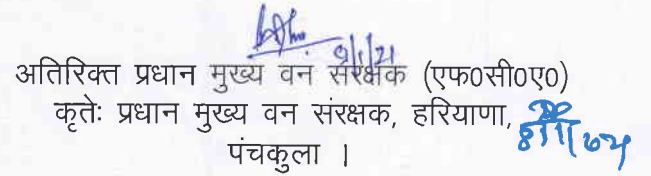 9/1/21
अतिरिक्त प्रधान मुख्य वन संरक्षक (एफ0सी0ए0)
कृतेः प्रधान मुख्य वन संरक्षक, हरियाणा,
पंचकुला ।